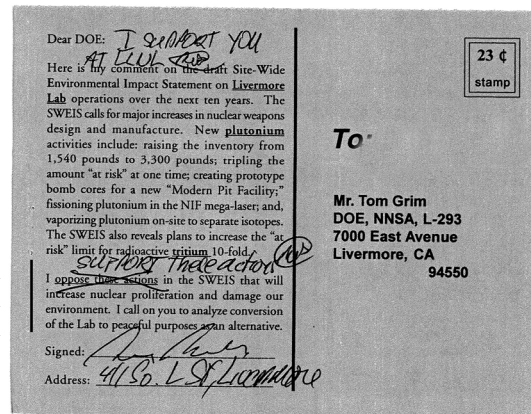 Dear DOE: I SUPPORT YOU
AT LLNL
Here is my comment on the draft Site-Wide
Environmental Impact Statement on Livermore
Lab operations over the next ten years. The
SWEIS calls for major increases in nuclear weapons
design and manufacture. New plutonium
activities include: raising the inventory from
1,540 pounds to 3,300 pounds; tripling the
amount "at risk" at one time; creating prototype
bomb cores for a new "Modern Pit Facility;"
fissioning plutonium in the NIF mega-laser; and,
vaporizing plutonium on-site to separate isotopes.
The SWEIS also reveals plans to increase the "at
risk" limit for radioactive tritium 10-fold.
SUPPORT these action
I oppose these actions in the SWEIS that will
increase nuclear proliferation and damage our
environment. I call on you to analyze conversion
of the Lab to peaceful purposes as an alternative.
Signed:
Address: 411 So. L St, Livermore
23 ¢
stamp
To
Mr. Tom Grim
DOE, NNSA, L-293
7000 East Avenue
Livermore, CA
94550